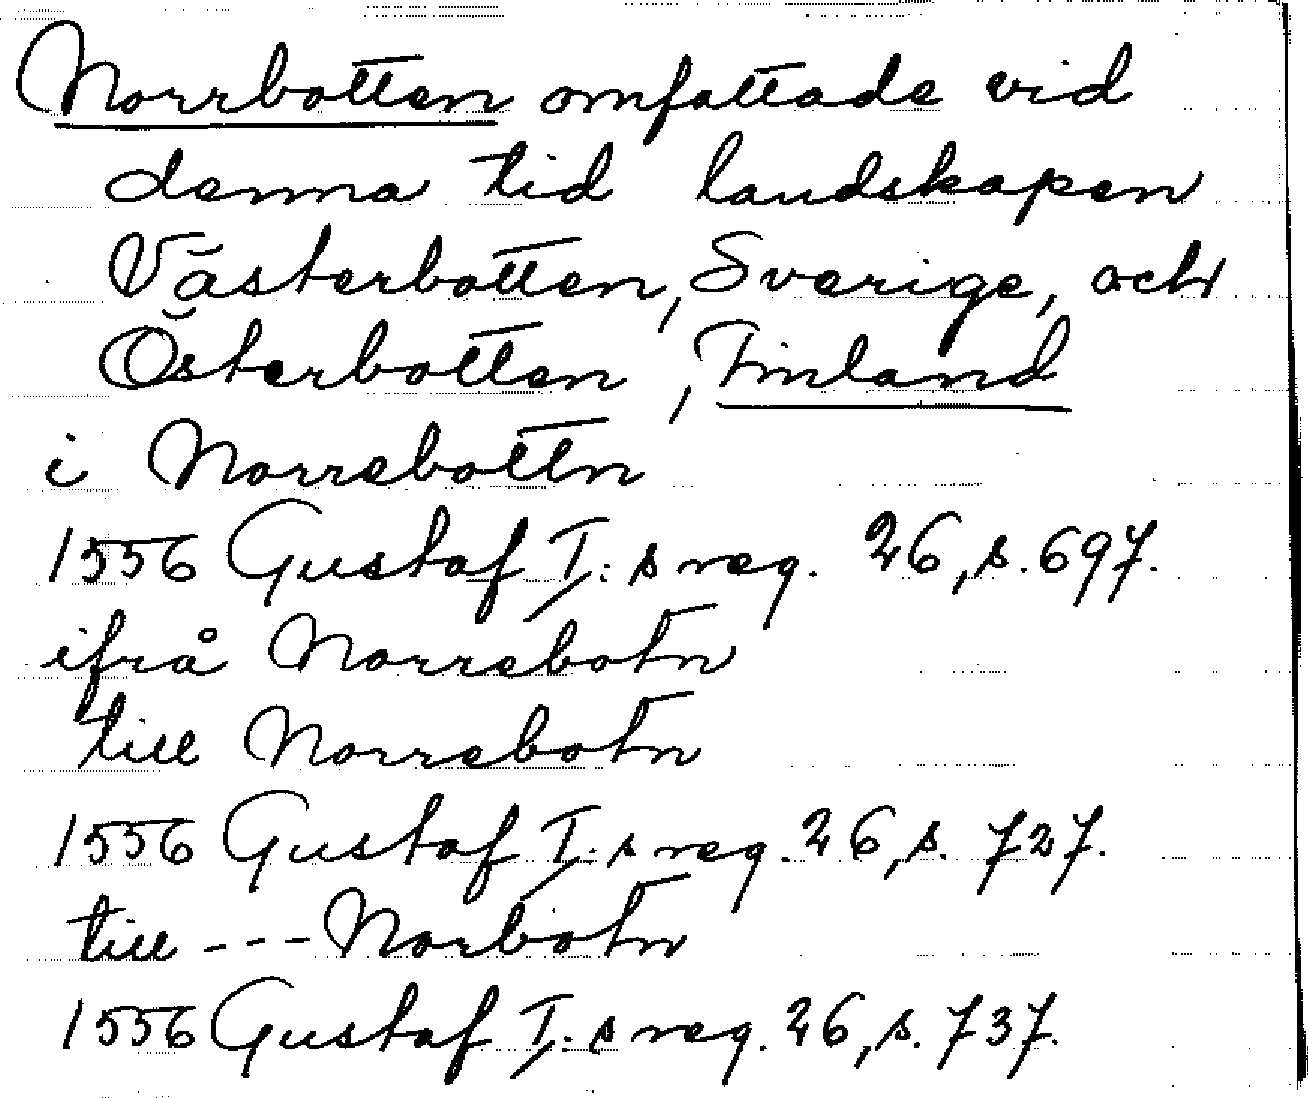 Norrbotten omfattade vid
denna tid landskapen
Västerbotten, Sverige, och
Österbotten, Finland
i Norrebottn
1556 Gustaf I:s reg. 26, s. 697.
ifrå Norrebotn
till Norrebotn
1556 Gustaf I:s reg. 26, s. 727.
till --- Norbotn
1556 Gustaf I:s reg. 26, s. 737.